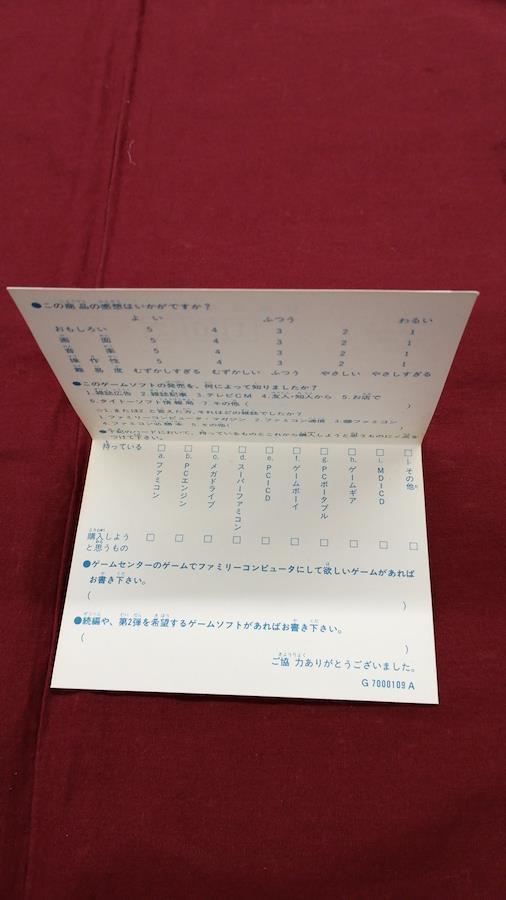 ●この商品の感想はいかがですか？
よい ふつう わるい
おもしろい 5 4 3 2 1
画面 5 4 3 2 1
音楽 5 4 3 2 1
操作性 5 4 3 2 1
難易度 むずかしすぎる むずかしい ふつう やさしい やさしすぎる
●このゲームソフトの発売を、何によって知りましたか？
1.雑誌広告 2.雑誌記事 3.テレビCM 4.友人・知人から 5.お店で
6.タイトーソフト情報局 7.その他( )
☆1.または2.と答えた方、それはどの雑誌でしたか？
1.ファミリーコンピュータ・マガジン 2.ファミコン通信 3.㊝ファミコン
4.ファミコン必勝本 5.その他(
●下記のハードにおいて、持っているものとこれから購入しようと思うものに✓を
つけて下さい。
持っている □ □ □ □ □ □ □ □ □ □
a.ファミコン
b.PCエンジン
c.メガドライブ
d.スーパーファミコン
e.PCICD
f.ゲームボーイ
g.PCポータブル
h.ゲームギア
i.MDICD
j.その他
購入しよう
と思うもの □ □ □ □ □ □ □ □ □ □
●ゲームセンターのゲームでファミリーコンピュータにして欲しいゲームがあれば
お書き下さい。
( )
●続編や、第2弾を希望するゲームソフトがあればお書き下さい。
( )
ご協力ありがとうございました。
G 7000109 A